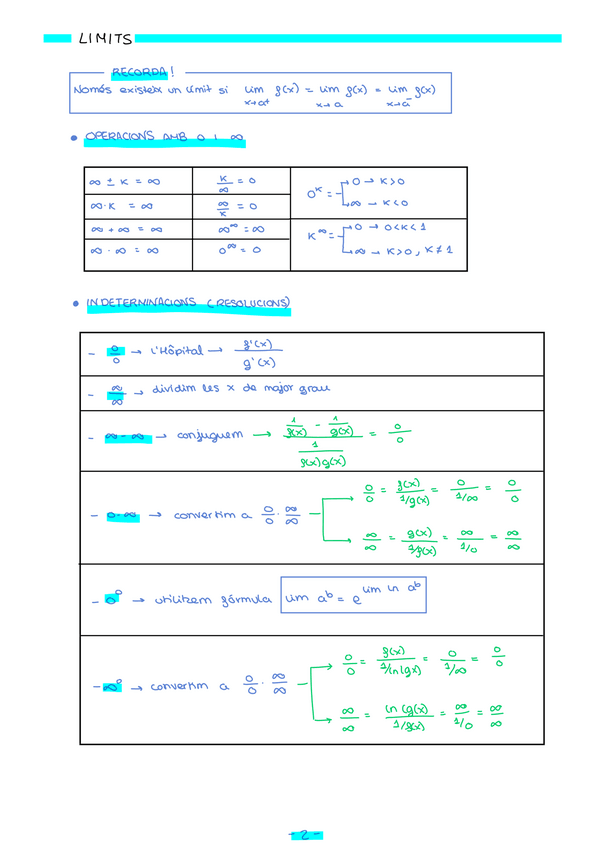 LIMITS
RECORDA!
Només existeix un límit si lim x→a⁺ f(x) = lim x→a f(x) = lim x→a⁻ f(x)
• OPERACIONS AMB 0 I ∞
∞ ± K = ∞
K/∞ = 0
0^K = → 0 → K>0
→ ∞ → K<0
∞·K = ∞
∞/K = 0
∞ + ∞ = ∞
∞^∞ = ∞
K^∞ = → 0 → 0<K<1
→ ∞ → K>0, K≠1
∞·∞ = ∞
0^∞ = 0
• INDETERMINACIONS (RESOLUCIONS)
- 0/0 → L'Hôpital → f'(x)/g'(x)
- ∞/∞ → dividim les x de major grau
- ∞-∞ → conjuguem → (1/f(x) - 1/g(x))/(1/f(x)g(x)) = 0/0
- 0·∞ → convertim a 0/0 · ∞/∞
→ 0/0 = f(x)/(1/g(x)) = 0/(1/∞) = 0/0
→ ∞/∞ = g(x)/(1/f(x)) = ∞/(1/0) = ∞/∞
- 0^0 → utilitzem fórmula lim a^b = e^(lim ln a^b)
- ∞^0 → convertim a 0/0 · ∞/∞
→ 0/0 = f(x)/(1/ln(gx)) = 0/(1/∞) = 0/0
→ ∞/∞ = ln(g(x)/(1/f(x)) = ∞/(1/0) = ∞/∞
- 2 -